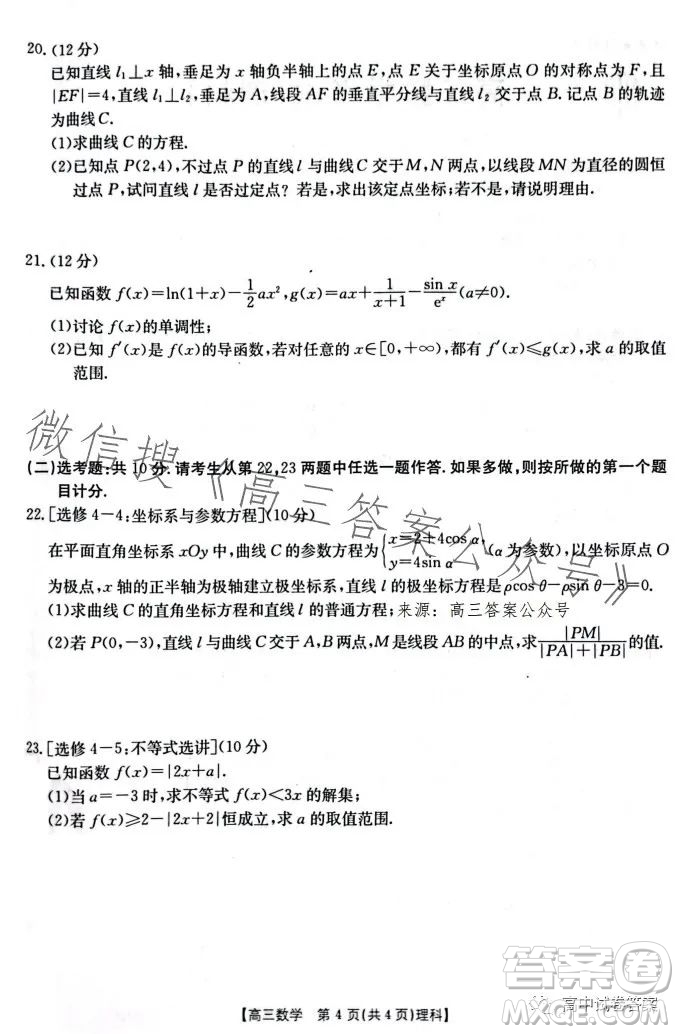 20.(12分)
已知直线 l₁⊥x 轴,垂足为 x 轴负半轴上的点 E,点 E 关于坐标原点 O 的对称点为 F,且
|EF|=4,直线 l₁⊥l₂,垂足为 A,线段 AF 的垂直平分线与直线 l₂ 交于点 B.记点 B 的轨迹
为曲线 C.
(1)求曲线 C 的方程.
(2)已知点 P(2,4),不过点 P 的直线 l 与曲线 C 交于 M,N 两点,以线段 MN 为直径的圆恒
过点 P,试问直线 l 是否过定点?若是,求出该定点坐标;若不是,请说明理由.
21.(12分)
已知函数 f(x)=ln(1+x)-\frac{1}{2}ax²,g(x)=ax+\frac{1}{x+1}-\frac{sin x}{eˣ}(a≠0).
(1)讨论 f(x)的单调性;
(2)已知 f′(x)是 f(x)的导函数,若对任意的 x∈[0,+∞),都有 f′(x)≤g(x),求 a 的取值
范围.
微信搜《高三答案公众号》
(二)选考题:共 10 分.请考生从第 22,23 两题中任选一题作答.如果多做,则按所做的第一个题
目计分.
22.[选修 4-4:坐标系与参数方程](10分)
在平面直角坐标系 xOy 中,曲线 C 的参数方程为{x=2+4cos α, y=4sin α (α 为参数),以坐标原点 O
为极点,x 的正半轴为极轴建立极坐标系,直线 l 的极坐标方程是 ρcos θ-ρsin θ-3=0.
(1)求曲线 C 的直角坐标方程和直线 l 的普通方程;来源:高三答案公众号
(2)若 P(0,-3),直线 l 与曲线 C 交于 A,B 两点,M 是线段 AB 的中点,求\frac{|PM|}{|PA|+|PB|}的值.
23.[选修 4-5:不等式选讲](10分)
已知函数 f(x)=|2x+a|.
(1)当 a=-3 时,求不等式 f(x)<3x 的解集;
(2)若 f(x)≥2-|2x+2|恒成立,求 a 的取值范围.
答案卷
高中试卷答案
【高三数学 第 4 页(共 4 页)理科】